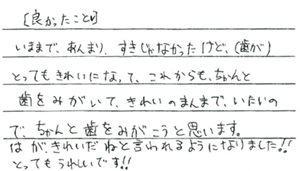 [良かったこと]
いままで、あんまり、すきじゃなかったけど、(歯が)
とってもきれいになって、これからも、ちゃんと
歯をみがいて、きれいのまんまで、いたいの
で、ちゃんと歯をみがこうと思います。
はが、きれいだねと言われるようになりました!!
とってもうれしいです!!